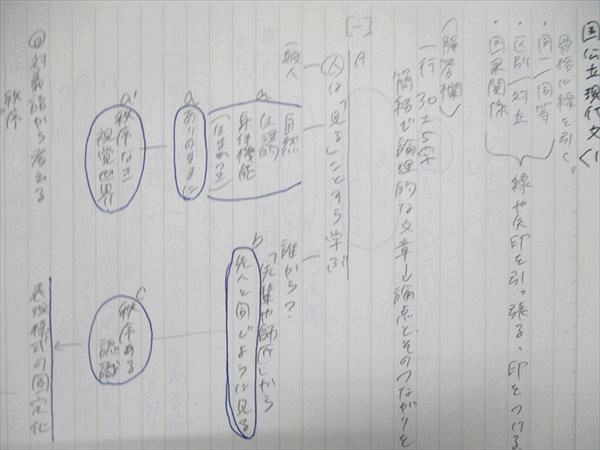 国公立現代文〈1
骨格に線を引く。
・同一/同等
・区別/対立
・因果関係
線や矢印を引っ張る・印をつける
〈解答欄〉
一行 30±5字
簡潔で論理的な文章→論点とそのつながりを
[一]
A
一般人
人は「見る」ことすら学ぶ
a
自然
生理的
身体機能
(生まれつき)
a
ありのままに
a'
秩序なき
視覚世界
誰から?
「先輩や師匠」から
b
先人と同じように見る
c
秩序ある
認識
表現様式の固定化
◎対義語から考える
秩序